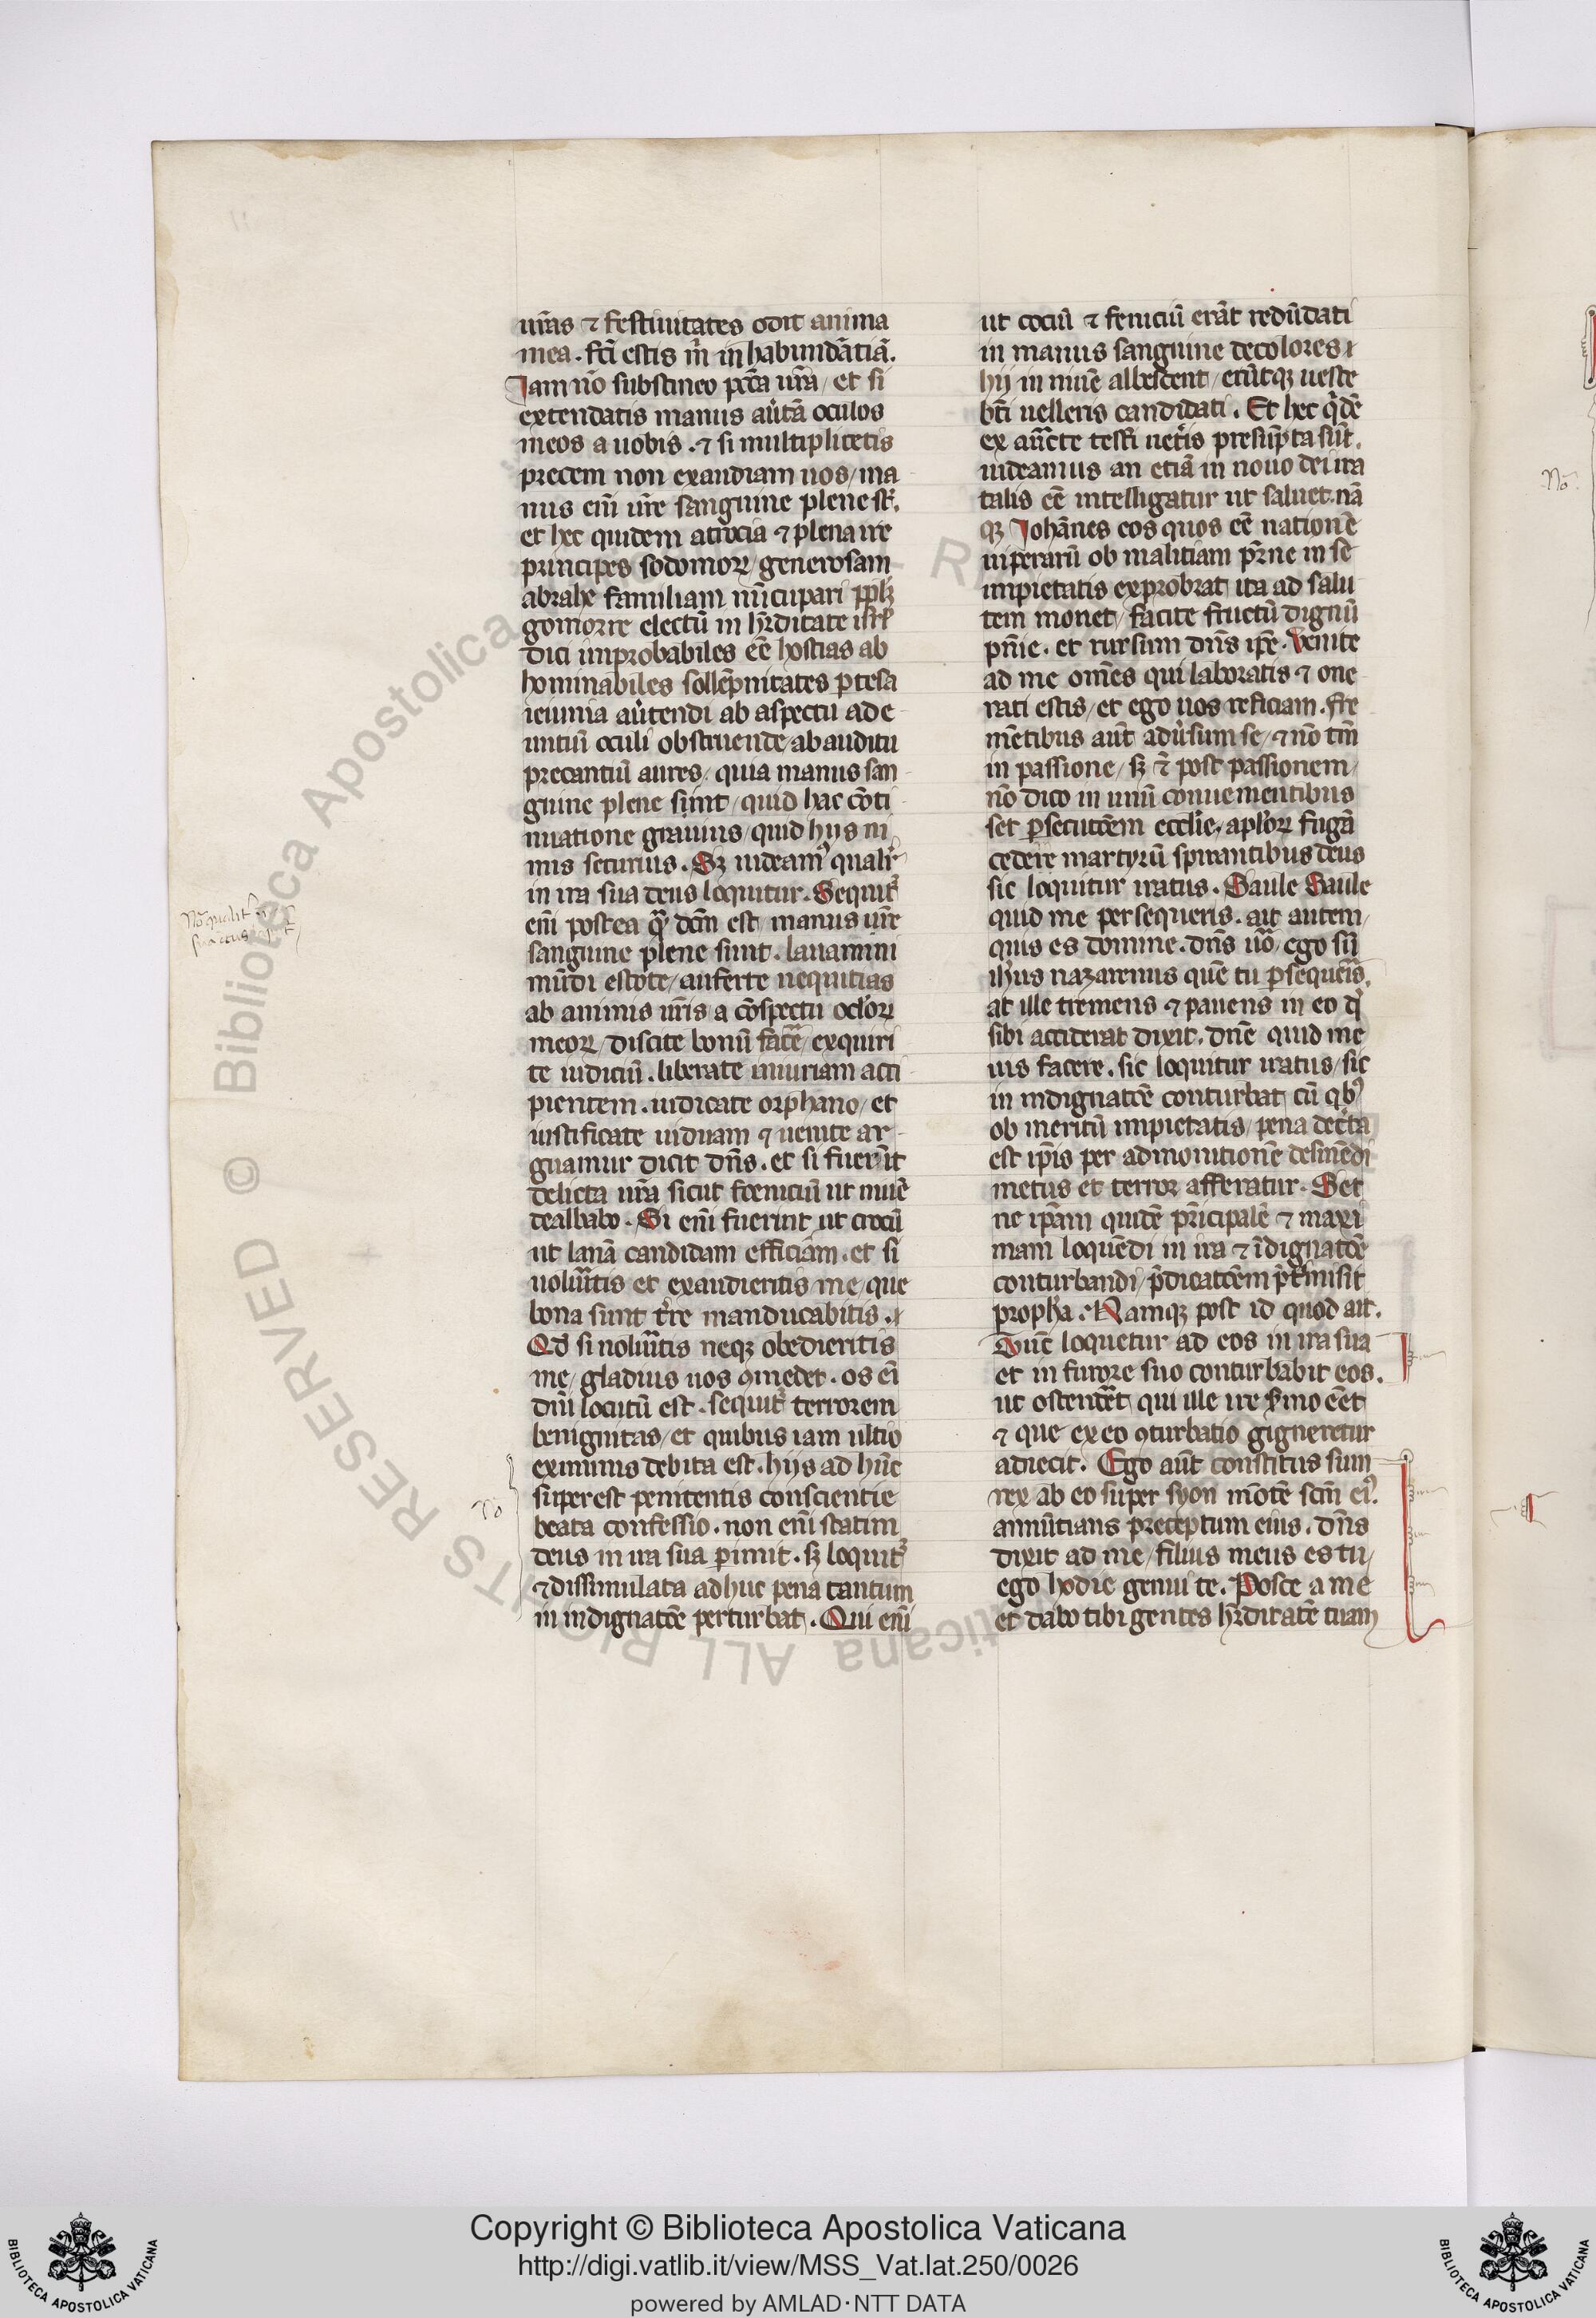 ur̄as ⁊ festiuitates odit anima
mea . fc̄i estis m̄ in habundātiā .
Iam nō substineo pctā ur̄a / et si
extendatis manus au̾tā oculos
meos a uobis . ⁊ si multiplicetis
precem non exaudiam uos / ma
nus em̄ ur̄e sanguine plene st̄ .
et hec quidem atrocia ⁊ plena ire
principes sodomoꝝ / generosam
abrahe familiam nūcupari ppl̄ꝫ
gomorre electū in hr̄ditate isrl̄
dici improbabiles eē hostias ab
hominabiles sollēpnitates ꝑtesa
ieiunia au̾tendi ab aspectu ade
untiū oculi obstruende / ab auditu
precantiū aures / quia manus san
guine plene sunt / quid hac cōti
nuatione grauius / quid hys ni
mis seturius . Sꝫ uideamꝰ qualr̄
in ira sua deus loquitur . Sequit᷑
em̄ postea qᷓ dcm̄ est / manus ur̄e
sanguine plene sunt . lauamini
mūdi estote / auferte nequitias
ab animis ur̄is a cōspectu ocl̄oꝝ
meoꝝ / discite bonū facͤe / exquiri
te iudiciū . liberate iniuriam acci
pientem . iudicate orphano / et
iustificate uiduam ⁊ uenite ar
guamur dicit dn̄s . et si fuer̄it
delicta ur̄a sicut feniciū ut niuē
dealbabo . Si em̄ fuerint ut crocū
ut lanā candidam efficiām . et si
uoluītis et exaudieritis me / que
bona sunt tr̄e manducabitis .
Qd̄ si noluītis neqꝫ obedieritis
me / gladius uos ꝯmedet . os ei̅
dn̄i locutū est . sequit᷑ terrorem
benignitas / et quibus iam ultio
eximinis debita est . hijs ad hūc
superest penitentis conscientie
beata confessio . non em̄ statim
deus in ira sua ꝑimit . sꝫ loquit᷑
⁊ dissimulata adhuc pena tantum
in indignatōe perturbat . Qui em̄
ut cociū ⁊ feniciū erāt redūdati
in manus sanguine decolores ⁊
hij in niuē albescent / erūtqꝫ ueste
bt̄i uelleris candidati . Et hec qͥdē
ex auc̄te test̄i uet̾is presūpta sūt .
uideamus an etiā in nouo dei ira
talis eē intelligatur ut saluet . nā
qꝫ Iohānes eos quos eē nationē
uiperarū ob malitiam pr̄ne in se
impietatis exprobrat ita ad salu
tem monet / facite fructū dignū
pn̄ie . et rursum dn̄s ip̄e . Venite
ad me omēs qui laboratis ⁊ one
rati estis / et ego uos reficiam . fre
mētibus aūt adu̾sum se / ⁊ nō tm̄
in passione / sꝫ ⁊ post passionem /
nō dico in unū conuenientibus
set ꝑsecutōem eccl̄ie / apl̄oꝝ fugā
cedere martyrū spirantibus deus
sic loquitur iratus . Saule Saule
quid me persequeris . ait autem
quis es domine . dn̄s uͦo / ego sū
ih̄us nazarenus quē tu ꝑsequeris .
at ille tremens ⁊ pauens in eo qͩ
sibi acciderat dixit . dn̄e quid me
uis facere . sic loquitur iratus / sic
in indignatōe conturbat cū qbꝰ
ob meritū impietatis / pena decͥta
est ip̄is per admonitionē desinēdi
metus et terror afferatur . Set
ne ip̄am quidē pr̄icipalē ⁊ maxi
mam loquēdi in ira ⁊ īdignatōe
conturbandi / p̄dicatōem p̄t̾misit
proph̄a . Namqꝫ post id quod ait .
Tunc loquetur ad eos in ira sua
et in furore suo conturbabit eos .
ut ostendͤet qui ille ire s̾mo eēt
⁊ que ex eo ꝯturbatio gigneretur
adiecit . Ego aūt constitus sum
rex ab eo super syon mōtē scm̄ eiꝰ .
annūtians preceptum eius . dn̄s
dixit ad me / filius meus es tu /
ego hodie genui te . Posce a me
et dabo tibi gentes hr̄ditatē tuam
Nō qualit᷑
Nō
Nō
© Biblioteca Apostolica Vaticana ALL RIGHTS RESERVED
BIBLIOTECA APOSTOLICA VATICANA
Copyright © Biblioteca Apostolica Vaticana
http://digi.vatlib.it/view/MSS_Vat.lat.250/0026
powered by AMLAD·NTT DATA
BIBLIOTECA APOSTOLICA VATICANA